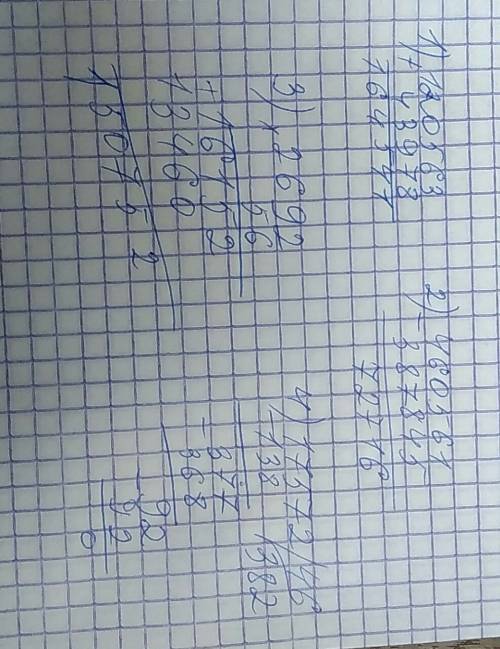 1) 120563
+ 43978
164541
2) 460561
- 387845
72716
3) × 2692
56
+ 16152
13460
150752
4) 17572 | 46
- 138 | 382
- 377
368
- 92
92
0